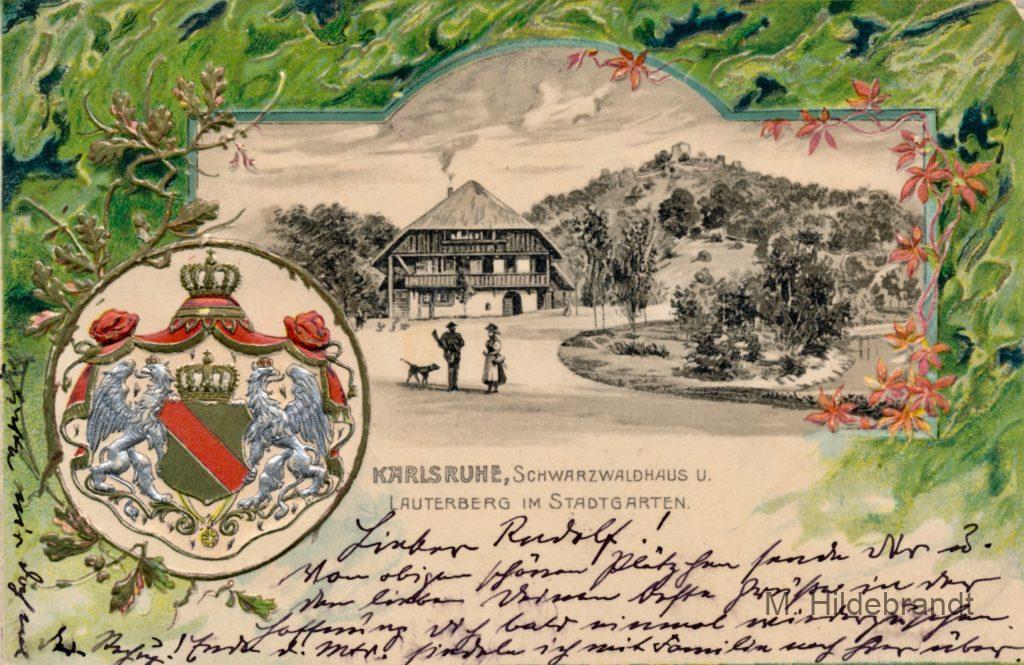 KARLSRUHE, SCHWARZWALDHAUS U.
LAUTERBERG IM STADTGARTEN.
Lieber Rudolf!
Vom obigen schönen Plätzchen sende Dir u.
den lieben Deinen beste Grüße in der
Hoffnung Dich bald einmal wiederzusehen.
Ende d. Mts. siedeln ich mit Familie nach hier über.
M. Hildebrandt